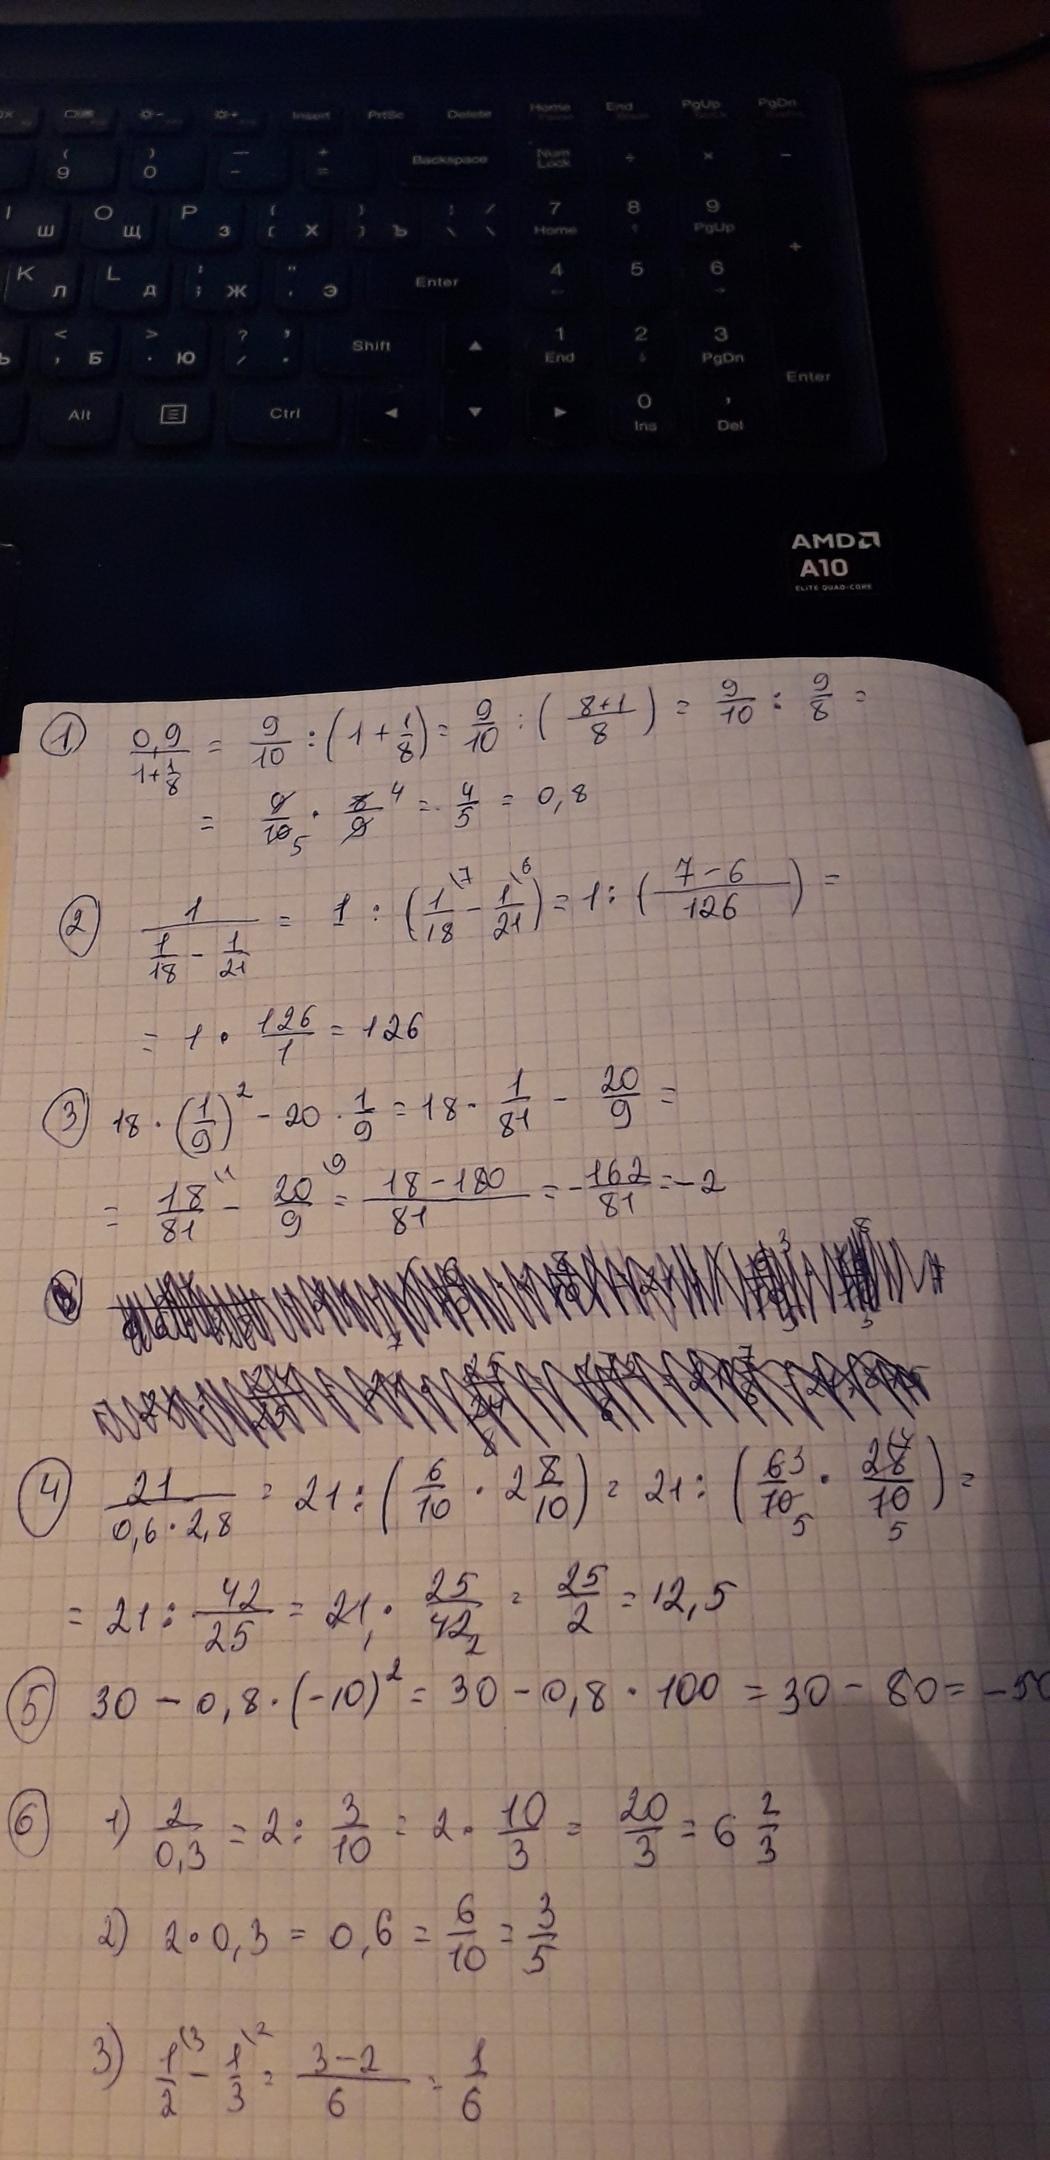 Insert PrtSc Delete Home End PgUp PgDn
( 9 ) 0 — - + = Backspace Num Lock ÷ × −
I Ш O Щ P З { [ Х } ] Ъ 7 Home 8 9 PgUp +
K Л L Д : ; Ж " Э Enter 4 5 6
< , Б > . Ю ? / Shift ▲ 1 End 2 3 PgDn Enter
Alt Ctrl ◄ ▼ ► 0 Ins , Del
AMD
A10
ELITE QUAD-CORE
① 0,9/(1+1/8) = 9/10 : (1 + 1/8) = 9/10 : ((8+1)/8) = 9/10 : 9/8 =
= 9/10 5 · 8/9 4 = 4/5 = 0,8
② 1/(1/18 − 1/21) = 1 : (1/18 \7 − 1/21 \6) = 1 : ((7−6)/126) =
= 1 · 126/1 = 126
③ 18 · (1/9)² − 20 · 1/9 = 18 · 1/81 − 20/9 =
= 18/81 \1 − 20/9 \9 = (18−180)/81 = −162/81 = −2
④ 21/(0,6 · 2,8) = 21 : (6/10 · 2 8/10) = 21 : (6 3/10 5 · 28 14/10 5) =
= 21 : 42/25 = 21 1 · 25/42 2 = 25/2 = 12,5
⑤ 30 − 0,8 · (−10)² = 30 − 0,8 · 100 = 30 − 80 = −50
⑥ 1) 2/0,3 = 2 : 3/10 = 2 · 10/3 = 20/3 = 6 2/3
2) 2 · 0,3 = 0,6 = 6/10 = 3/5
3) 1/2 \3 − 1/3 \2 = (3−2)/6 = 1/6